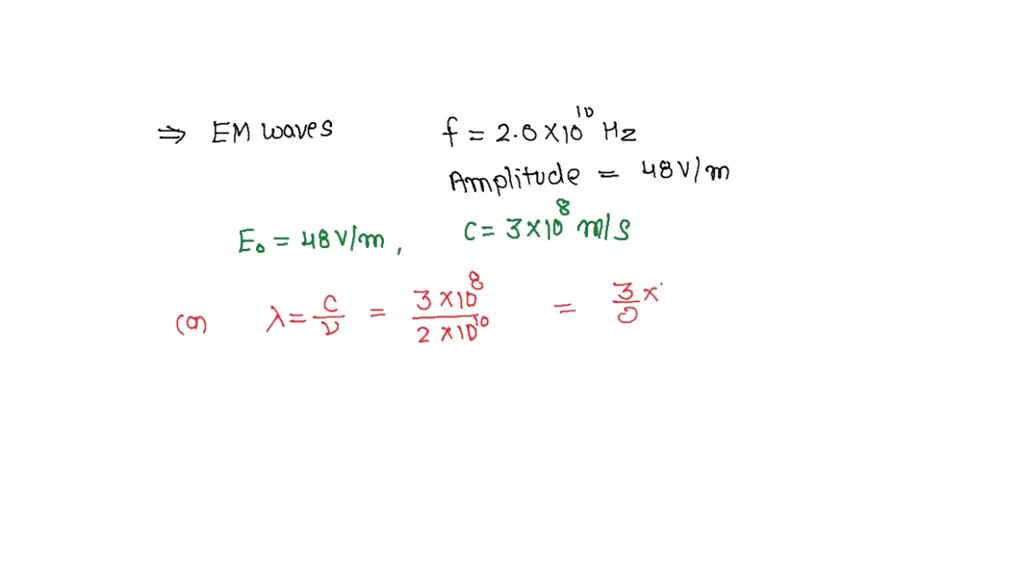 ⇒ EM waves f = 2.0×10¹⁰ Hz
Amplitude = 48 V/m
E₀ = 48 V/m, c = 3×10⁸ m/s
(a) λ = c/ν = 3×10⁸/2×10¹⁰ = 3/0 ×